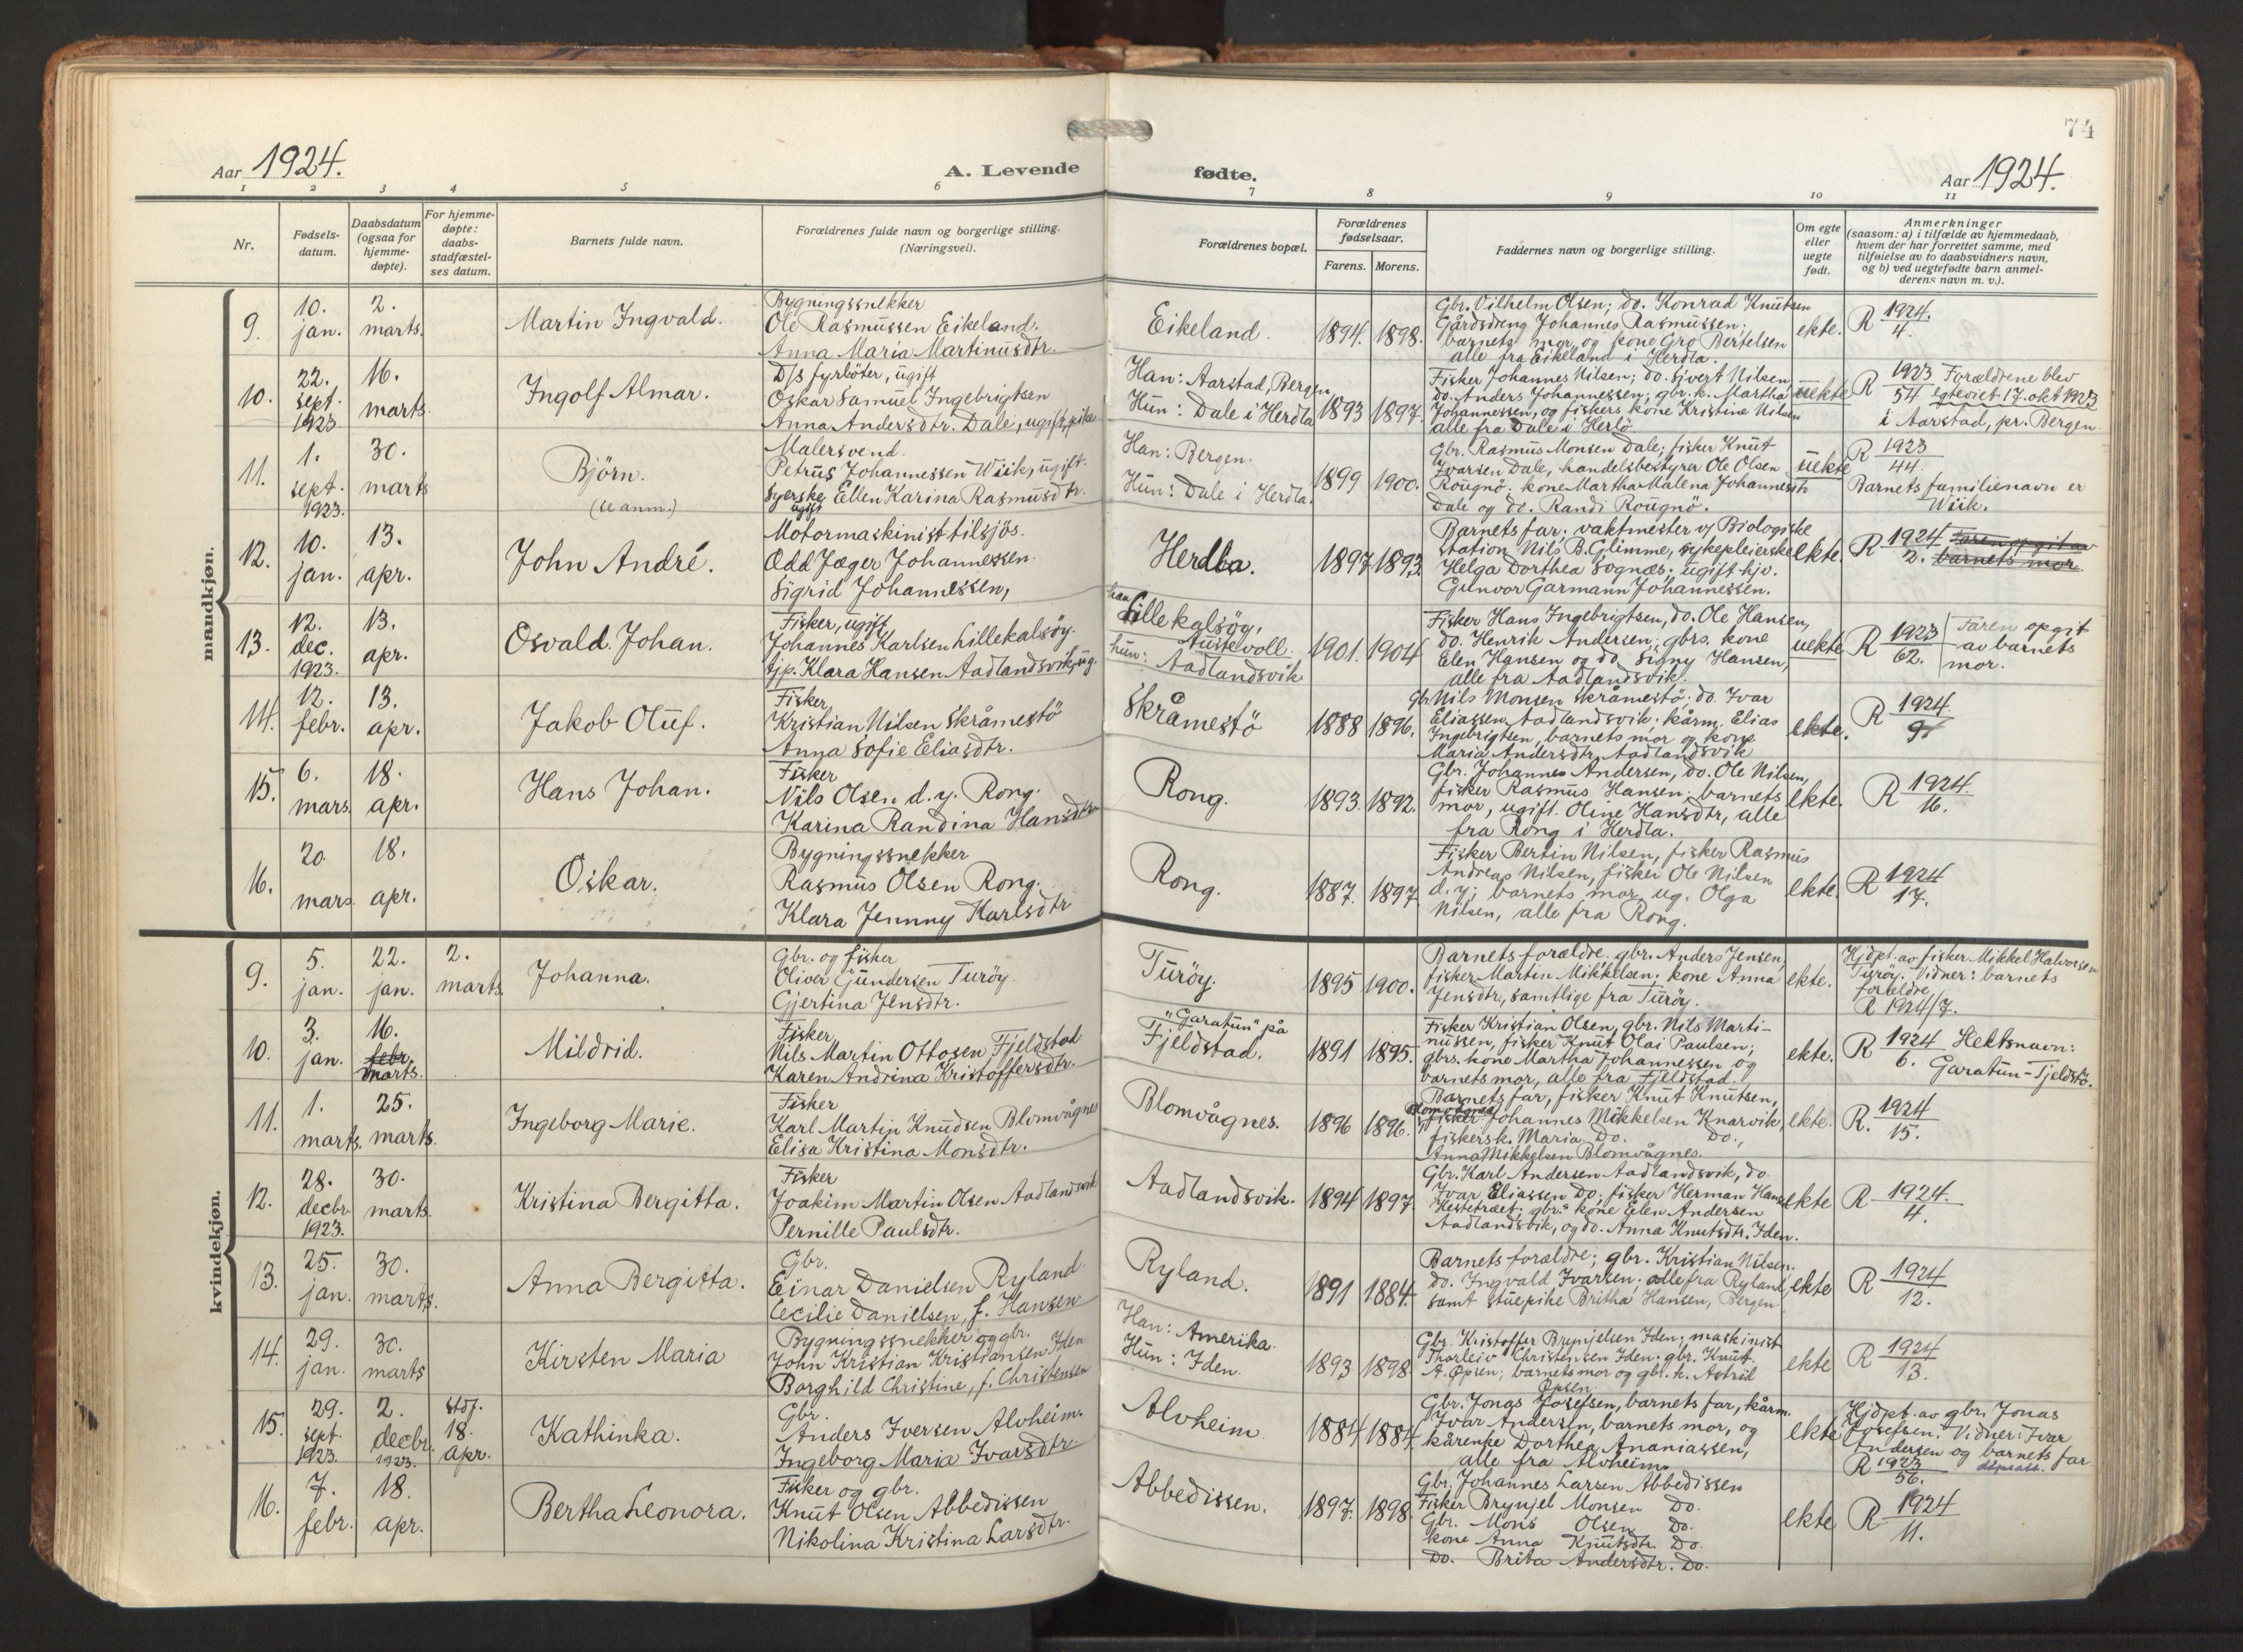 74
Aar 1924.
A. Levende
fødte.
Aar 1924.
1 2 3 4 5 6 7 8 9 10 11
Nr.
Fødsels-
datum.
Daabsdatum
(ogsaa for
hjemme-
døpte).
For hjemme-
døpte:
daabs-
stadfæstel-
ses datum.
Barnets fulde navn.
Forældrenes fulde navn og borgerlige stilling.
(Næringsvei).
Forældrenes bopæl.
Forældrenes
fødselsaar.
Farens. Morens.
Faddernes navn og borgerlige stilling.
Om egte
eller
uegte
født.
Anmerkninger
(saasom: a) i tilfælde av hjemmedaab,
hvem der har forrettet samme, med
tilføielse av to daabsvidners navn,
og b) ved uegtefødte barn anmel-
derens navn m. v.).
mandkjøn.
9.
10.
jan.
2.
marts.
Martin Ingvald.
Bygningssnekker
Ole Rasmussen Eikeland.
Anna Maria Martinusdtr.
Eikeland.
1894. 1898.
Gbr. Vilhelm Olsen; do. Konrad Knutsen
Gårdsdreng Johannes Rasmussen;
barnets mor og kone Gro Bertelsen
alle fra Eikeland i Herdla.
ekte.
R 1924.
4.
10.
22.
sept.
1923
16.
marts.
Ingolf Almar.
D/s fyrböter, ugift
Oskar Samuel Ingebrigtsen
Anna Andersdtr. Dale, ugift, pike
Han: Aarstad, Bergen
Hun: Dale i Herdla
1893 1897.
Fisker Johannes Nilsen; do. Sjvert Nilsen,
do. Anders Johannessen; gbr. k. Martha
Johannessen, og fiskers kone Kristine Nilsen
alle fra Dale i Herlö
uekte
R 1923 Forældrene blev
54 egteviet 17. okt 1923
i Aarstad, pr. Bergen.
11.
1.
sept.
1923.
30.
marts
Björn.
(se anm.)
Malersvend.
Petrus Johannessen Wiik, ugift.
Syerske Ellen Karina Rasmusdtr.
ugift
Han: Bergen.
Hun: Dale i Herdla.
1899 1900.
Gbr. Rasmus Monsen Dale; fisker Knut
Ivarsen Dale, handelsbestyrer Ole Olsen
Rougnö. kone Martha Malena Johannesdtr
Dale og do. Randi Rougnö.
uekte
R 1923
44.
Barnets familienavn er
Wiik.
12.
10.
jan.
13.
apr.
John André.
Motormaskinist tilsjös.
Odd Jæger Johannessen.
Sigrid Johannessen,
Herdla.
1897 1893.
Barnets far; vaktmester v/ Biologiske
station Nils B. Glimme, sykepleierske
Helga Dorthea Sognæs; ugift hjv.
Gunvor Garmann Johannessen.
ekte.
R 1924 Faren opgit av
2. barnets mor.
13.
12.
dec.
1923.
13.
apr.
Osvald Johan.
Fisker, ugift
Johannes Karlsen Lillekalsöy.
tjp. Klara Hansen Aadlandsvik, ug.
han
Lillekalsöy,
hun: Aadlandsvik.
1901. 1904
Fisker Hans Ingebrigtsen, do. Ole Hansen,
do. Henrik Andersen; gbrs. kone
Elen Hansen og do Signy Hansen,
alle fra Aadlandsvik.
uekte
R 1923
62.
Faren opgit
av barnets
mor.
14.
12.
febr.
13.
apr.
Jakob Oluf.
Fisker
Kristian Nilsen Skråmestö
Anna Sofie Eliasdtr.
Skråmestö
1888 1896.
gbr. Nils Monsen Skråmestö; do. Ivar
Eliassen Aadlandsvik; kårm. Elias
Ingebrigtsen, barnets mor og kone
Maria Andersdtr Aadlandsvik
ekte.
R 1924.
9.
15.
6.
mars.
18.
apr.
Hans Johan.
Fisker
Nils Olsen d. y. Rong.
Karina Randina Hansdtr
Rong.
1893. 1892.
Gbr. Johannes Andersen, do. Ole Nilsen,
fisker Rasmus Hansen; barnets
mor, ugift. Oline Hansdtr, alle
fra Rong i Herdla.
ekte.
R 1924.
16.
16.
20.
mars
18.
apr.
Oskar.
Bygningssnekker
Rasmus Olsen Rong.
Klara Jennny Karlsdtr
Rong.
1887. 1897.
Fisker Bertin Nilsen, fisker Rasmus
Andreas Nilsen, fisker Ole Nilsen
d. y; barnets mor, ug. Olga
Nilsen, alle fra Rong.
ekte.
R 1924
17.
kvindekjøn.
9.
5.
jan.
22.
jan.
2.
marts.
Johanna.
Gbr. og fisker
Oliver Gundersen Turöy.
Gjertina Jensdtr.
Turöy.
1895 1900.
Barnets forældre. gbr. Anders Jensen,
fisker Martin Mikkelsen. kone Anna
Jensdtr, samtlige fra Turöy.
ekte.
Hjdpt. av fisker Mikkel Halvorsen
Turöy. Vidner: barnets
forældre
R 1924/7.
10.
3.
jan.
16.
febr.
marts.
Mildrid.
Fisker
Nils Martin Ottosen Fjeldstad
Karen Andrina Kristoffersdtr.
"Garatun" på
Fjeldstad.
1891 1895.
Fisker Kristian Olsen, gbr. Nils Marti-
nussen, fisker Knut Olai Paulsen;
gbrs. kone Martha Johannessen og
barnets mor, alle fra Fjeldstad.
ekte.
R 1924 Slektsnavn:
6. Garatun-Fjeldstö.
11.
1.
marts.
25.
marts.
Ingeborg Marie.
Fisker
Karl Martin Knudsen Blomvågnes
Elisa Kristina Monsdtr.
Blomvågnes.
1896 1896.
Barnets far, fisker Knut Knutsen,
Blomvågnes
fisker Johannes Mikkelsen Knarvik,
fiskersk. Maria Do. Do.,
Anna Mikkelsen Blomvågnes.
ekte.
R. 1924
15.
12.
28.
decbr.
1923.
30.
marts.
Kristina Bergitta.
Fisker
Joakim Martin Olsen Aadlandsvik
Pernille Paulsdtr.
Aadlandsvik.
1894 1897.
Gbr. Karl Andersen Aadlandsvik, do.
Ivar Eliassen Do; fisker Herman Hansen
Hestetræet; gbr.s kone Elen Andersen
Aadlandsvik, og do. Anna Knutsdtr. Iden.
ekte
R 1924.
4.
13.
25.
jan.
30.
marts.
Anna Bergitta.
Gbr.
Einar Danielsen Ryland.
Cecilie Danielsen, f. Hansen
Ryland.
1891 1884.
Barnets forældre; gbr. Kristian Nilsen.
do. Ingvald Ivarsen. alle fra Ryland,
samt stuepike Britha Hansen, Bergen.
ekte
R 1924
12.
14.
29.
jan.
30.
marts
Kirsten Maria
Bygningssnekker og gbr.
John Kristian Kristiansen Iden
Borghild Christine, f. Christensen
Han: Amerika.
Hun: Iden.
1893 1898.
Gbr. Kristoffer Brynjelsen Iden; maskinist
Thorleiv Christensen Iden. gbr. Knut
A. Øpsen; barnets mor og gbr. k. Astrid
Øpsen.
ekte
R 1924
13.
15.
29.
sept.
1923.
2.
decbr.
1923.
stdf.
18.
apr.
Kathinka.
Gbr.
Anders Iversen Alvheim.
Ingeborg Maria Ivarsdtr.
Alvheim
1884 1884.
Gbr. Jonas Josefsen, barnets far, kårm.
Ivar Andersen, barnets mor, og
kårenke Dorthea Ananiassen,
alle fra Alvheim.
ekte
Hjdpt. av gbr. Jonas
Josefsen. Vidner: Ivar
Andersen og barnets far
R 1923
56.
16.
7.
febr.
18.
apr.
Bertha Leonora.
Fisker og gbr.
Knut Olsen Abbedissen
Nikolina Kristina Larsdtr.
Abbedissen.
1897. 1898.
Gbr. Johannes Larsen Abbedissen
Fisker Brynjel Monsen Do.
Gbr. Mons Olsen Do.
kone Anna Knutsdtr. Do.
Do. Brita Andersdtr. Do.
ekte
R 1924
11.